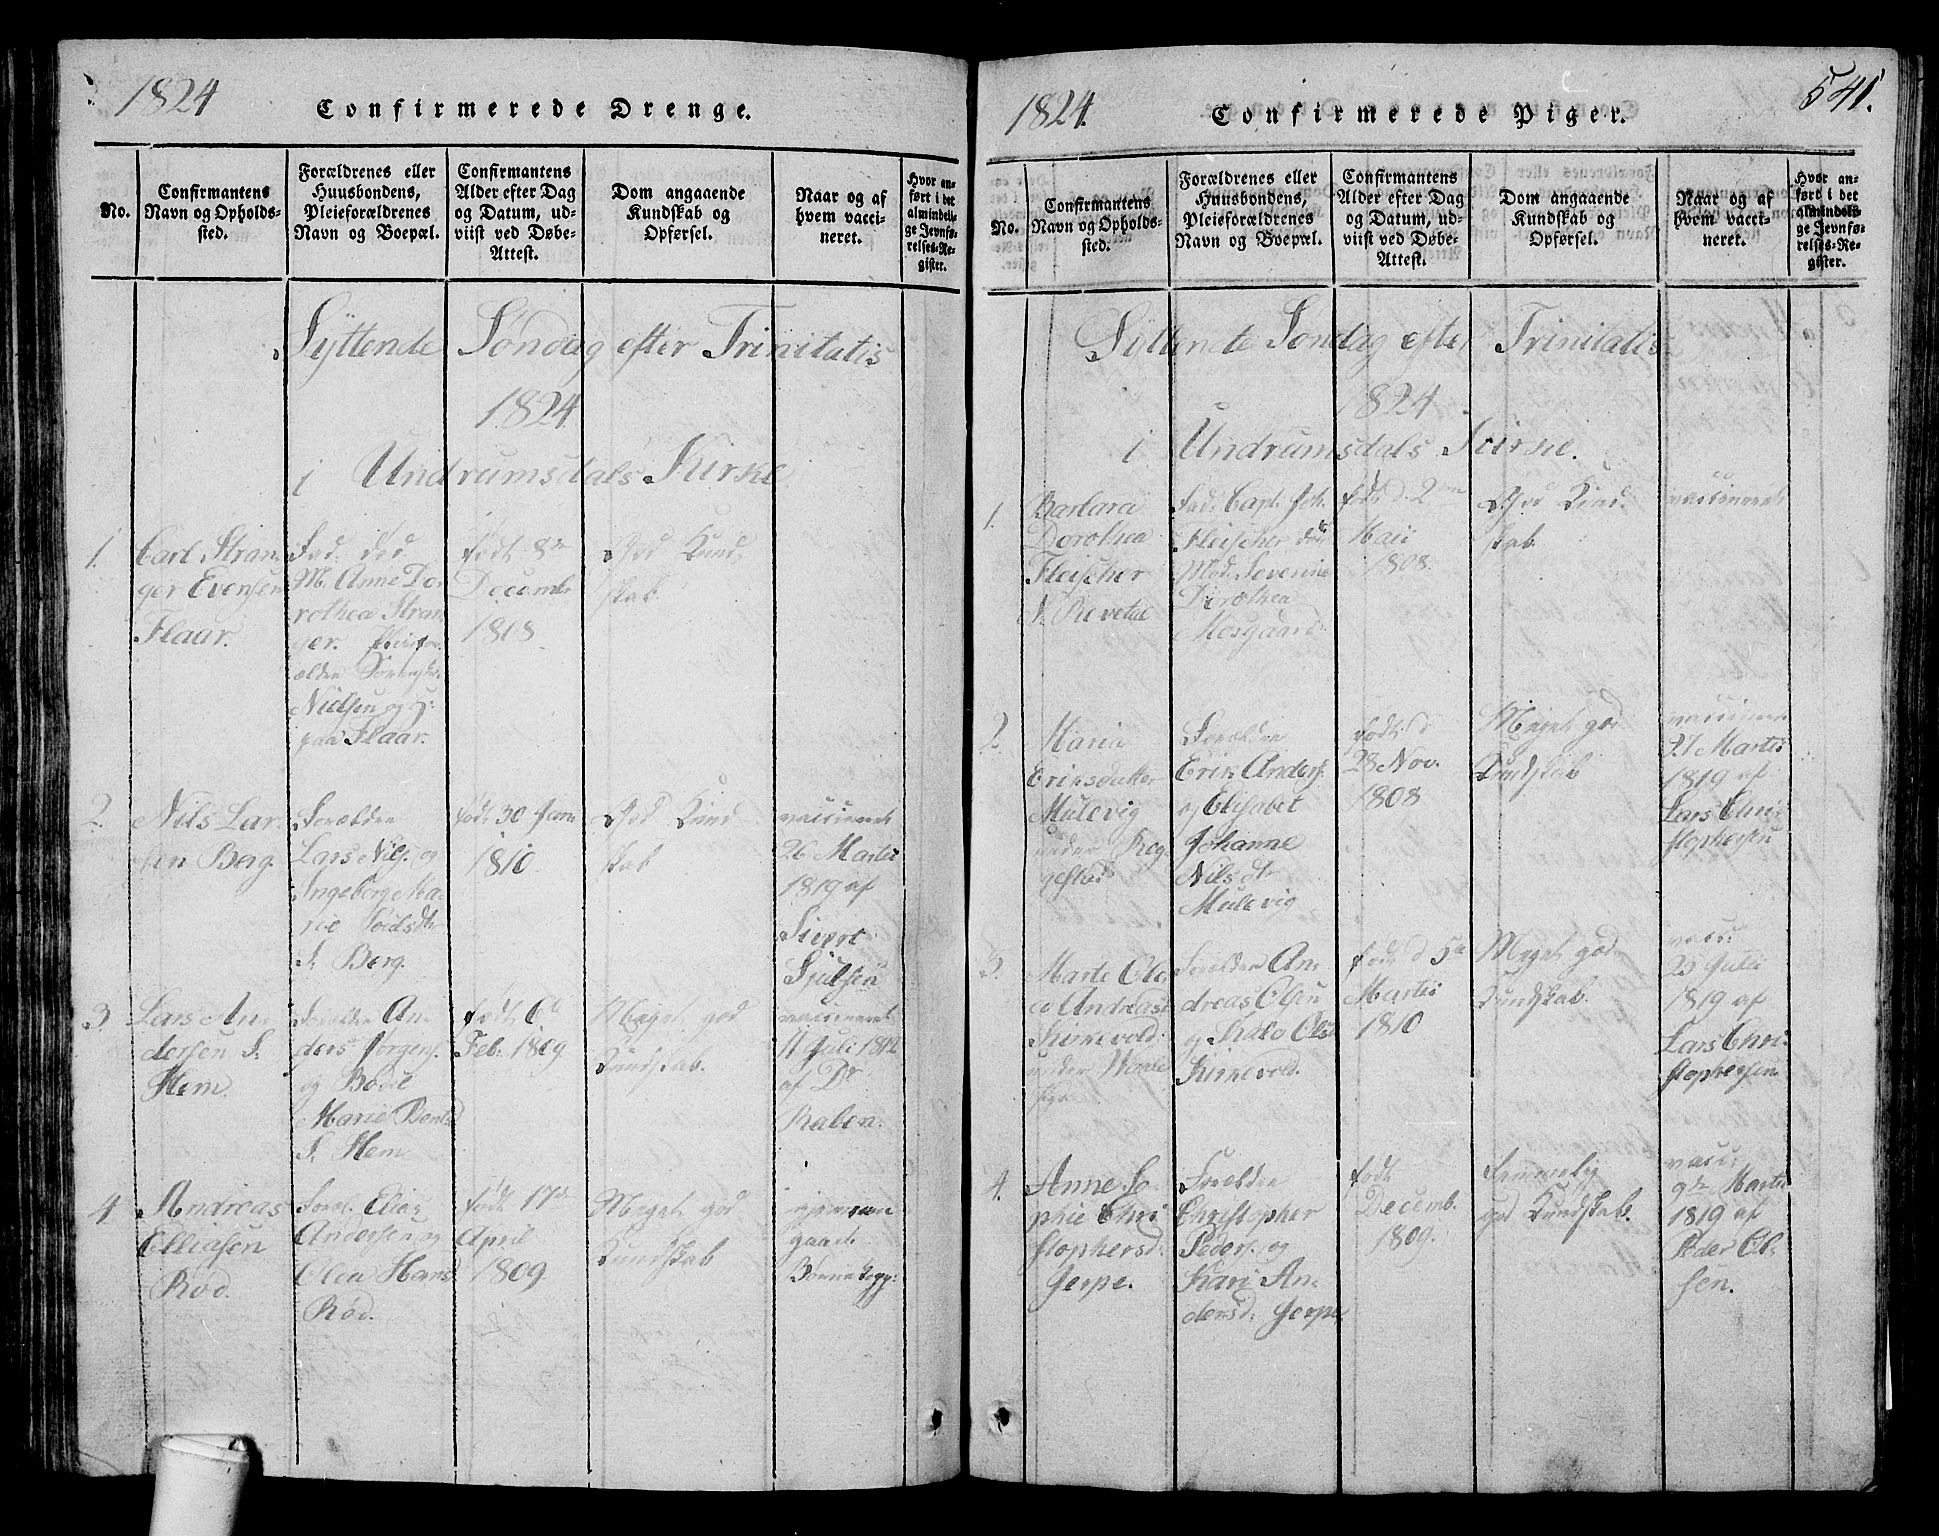 1824
Confirmerede Drenge.
No.
Confirmantens
Navn og Opholds-
sted.
Forældrenes eller
Huusbondens,
Pleieforældrenes
Navn og Boepæl.
Confirmantens
Alder efter Dag
og Datum, ud-
viist ved Døbe-
Attest.
Dom angaaende
Kundskab og
Opførsel.
Naar og af
hvem vacci-
neret.
Hvor an-
ført i det
almindeli-
ge Jevnfø-
relses-Re-
gister.
Syttende Søndag efter Trinitatis
1824
i Undrumsdals Kirke
1.
Carl Stran-
ger Evensen
Flaar.
Fad. død
M. Anne Do-
rothea Stran-
ger.
Nielsen og
paa Flaar.
født 8de
Decemb.
1808
God Kund-
skab
2.
Nils Lar-
sen Berg.
Forældre
Lars Nils. og
Ingeborg Ma-
rie
S. Berg.
født 30 Janu
1810
God Kund
skab
vaccineret
26 Martii
1819 af
Sivert
Sjulsen
3.
Lars An-
dersen S.
Hem.
Forældre An-
ders Jørgens.
og Bodil
Marie
S. Hem
født 6te
Feb. 1809
Meget god
Kundskab.
vaccineret
11 Juli 1812
af Dr
Raben.
4
Andreas
Elliasen
Rød.
Foræl. Elias
Andersen og
Olea Hans
Rød.
født 17de
April
1809
Meget god
Kundskab
igjennem
gaaet
Børnekopp:
1824.
Confirmerede Piger.
541.
No.
Confirmantens
Navn og Opholds-
sted.
Forældrenes eller
Huusbondens,
Pleieforældrenes
Navn og Boepæl.
Confirmantens
Alder efter Dag
og Datum, ud-
viist ved Døbe-
Attest.
Dom angaaende
Kundskab og
Opførsel.
Naar og af
hvem vacci-
neret.
Hvor an-
ført i det
almindeli-
ge Jevnfø-
relses-Re-
gister.
Syttende Søndag efter Trinitatis
1824
i Undrumsdals Kirke.
1.
Barbara
Dorothea
Fleischer
N. Revetal
Fad. Capt. Joh.
Fleischer død
Mod. Severine
Dorothea
Mosgaard
født d. 2den
Maii
1808.
God Kund-
skab.
vaccineret
2.
Maria
Eriksdatter
Mulevig
under Rog-
gestad
Forældre
Erik Anders.
og Elisabet
Johanne
Nilsdtr
Mulevig
født d
28 Nov.
1808
Meget god
Kundskab
vaccineret
27 Martii
1819 af
Lars Chri-
stophersen
3.
Marte Ole-
a Andreasd
Kirkevold
under
Forældre An-
dreas Olsen
og Olsd
Kirkevold.
født d 5te
Martii
1810
Meget god
Kundskab.
vacc:
25 Julii
1819 af
Lars Chri-
stophersen
4.
Anne So-
phie Chri
stophersd:
Jerpe.
Forældre
Christopher
Peders. og
Kari An-
dersd. Jerpe
født
Decemb.
1809.
Temmelig
god Kundskab.
vacc:
9de Martii
1819 af
Peder Ol-
sen.